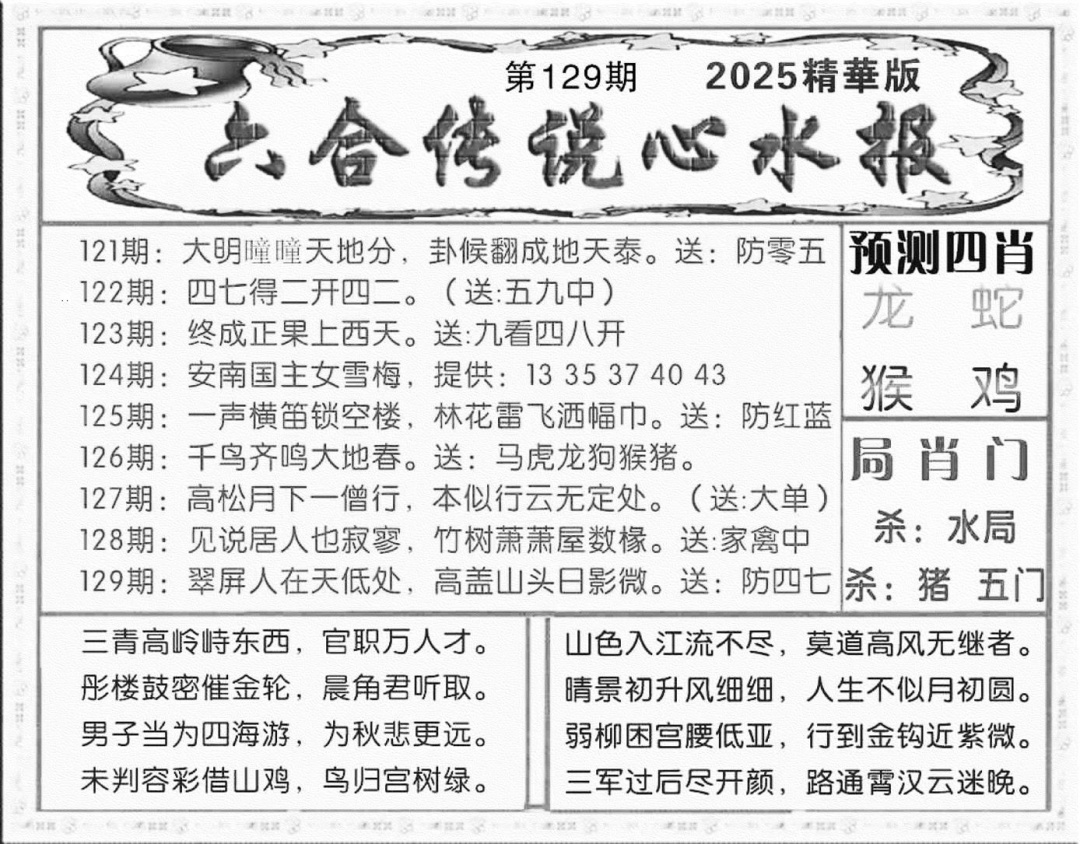 第129期 2025精華版
六合传说心水报
121期：大明曈曈天地分，卦候翻成地天泰。送：防零五
122期：四七得二开四二。（送:五九中）
123期：终成正果上西天。送:九看四八开
124期：安南国主女雪梅，提供：13 35 37 40 43
125期：一声横笛锁空楼，林花雷飞洒幅巾。送：防红蓝
126期：千鸟齐鸣大地春。送：马虎龙狗猴猪。
127期：高松月下一僧行，本似行云无定处。（送:大单）
128期：见说居人也寂寥，竹树萧萧屋数椽。送:家禽中
129期：翠屏人在天低处，高盖山头日影微。送：防四七
预测四肖
龙 蛇
猴 鸡
局肖门
杀：水局
杀：猪 五门
三青高岭峙东西，官职万人才。
彤楼鼓密催金轮，晨角君听取。
男子当为四海游，为秋悲更远。
未判容彩借山鸡，鸟归宫树绿。
山色入江流不尽，莫道高风无继者。
晴景初升风细细，人生不似月初圆。
弱柳困宫腰低亚，行到金钩近紫微。
三军过后尽开颜，路通霄汉云迷晚。